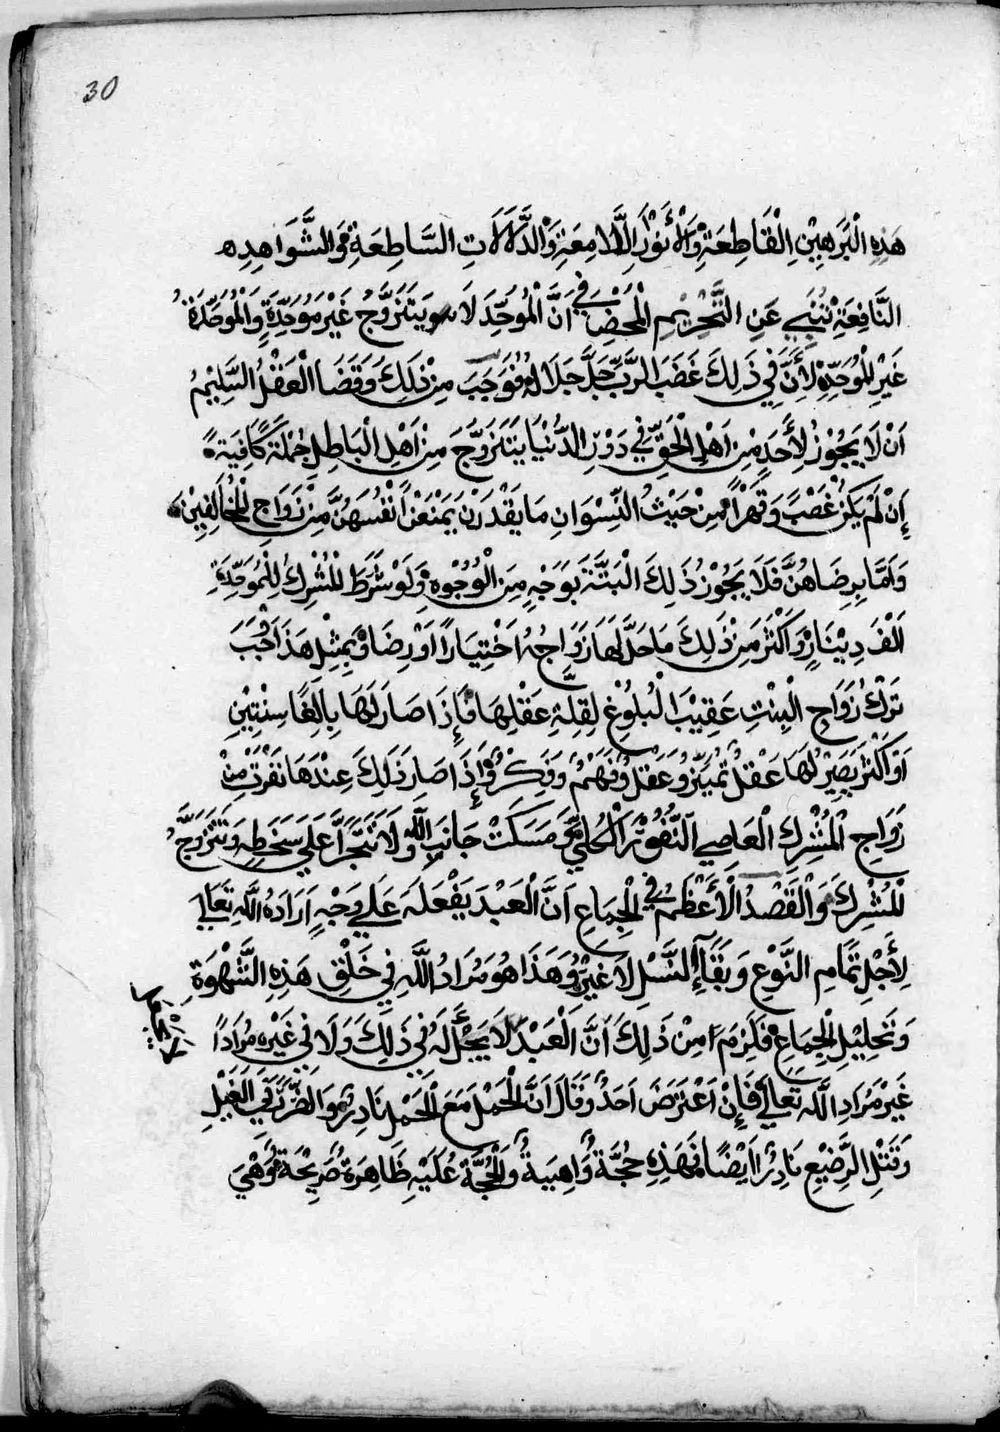 30
هَذِهِ الْبَرَهِيْنِ الْقَاطِعَةِ وَالْأَنْوَرِ اللَّامِعَةِ وَالدَّلَالَاتِ السَّاطِعَةِ وَالشَّوَاهِدِ
النَّافِعَةِ تُنْبِي عَنِ التَّحْرِيْمِ الْمَحْضِ فِي اَنَّ الْمُوَحِّدَ لَا يَتَزَوَّجُ غَيْرَ مُوَحِّدَةٍ وَالْمُوَحِّدَةُ
غَيْرِ الْمُوَحِّدِ لِأَنَّ فِي ذَلِكَ غَضَبَ الرَّبِّ جَلَّ جَلَالُهُ فَوَجَبَ مِنْ ذَلِكَ وَقَضَا الْعَقْلُ السَّلِيْمُ
اَنْ لَا يَجُوْزُ لِأَحَدٍ مِنْ اَهْلِ الْحَقِّ فِي دَوْرِ الدُّنْيَا يَتَزَوَّجَ مِنْ اَهْلِ الْبَاطِلِ جُمْلَةً كَافِيَةً
إِنْ لَمْ يَكُنْ غَصْبً وَقَهْرًا مِنْ حَيْثُ النِّسْوَانِ مَا يَقْدَرْنَ يَمْنَعْنَ اَنْفُسَهُنَّ مِنْ زَوَاجِ الْمُخَالِفِيْنَ
وَاَمَّا بِرِضَاهُنَّ فَلَا يَجُوْزُ ذَلِكَ الْبَتَّةَ بِوَجْهٍ مِنَ الْوُجُوْهِ وَلَوْ شَرَطَ الْمُشْرِكُ لِلْمُوَحِّدَةِ
اَلْفَ دِيْنَارٍ وَاَكْثَرَ مِنْ ذَلِكَ مَا حَلَّ لَهَا زَوَاجُهُ اخْتِيَارًا اَوْ رِضَا وَبِمِثْلِ هَذَا وَجَبَ
تَرْكُ زَوَاجِ الْبِنْتِ عَقِيْبَ الْبُلُوْغِ لِقِلَّةِ عَقْلِهَا فَإِذَا صَارَ لَهَا بِالِغًا سِنْتِيْنِ
اَوْ اَكْثَرَ يَصِيْرُ لَهَا عَقْلُ تَمْيِيْزٍ وَعَقْلُ وَفَهْمُ وَفِكْرُ وَإِذَا صَارَ ذَلِكَ عِنْدَهَا نَفَرَتْ مِنْ
زَوَاجِ الْمُشْرِكِ الْعَاصِي النُّفُوْرَ الْكُلِّي وَمَسَكَتْ جَانِبَ اللَّهِ وَلَا تَتَجَرَّا عَلَى سَخَطِهِ وَتَتَزَوَّجُ
الْمُشْرِكَ وَالْقَصْدُ الْأَعْظَمُ فِي الْجِمَاعِ اَنَّ الْعَبْدَ يَفْعَلَهُ عَلَي وَجْهٍ اَرَادَهُ اللَّهِ تَعَالَي
لِأَجْلِ تَمَامِ النَّوْعِ وَبَقَآءِ النَّسْلِ لَا غَيْرُ وَهَذَا هُوَ مُرَادُ اللَّهِ فِي خَلْقِ هَذِهِ الشَّهْوَةِ
وَتَحْلِيْلِ الْجِمَاعِ فَلَزِمَ مِنْ ذَلِكَ اَنَّ الْعَبْدَ لَا يَحِلُّ لَهُ فِي ذَلِكَ وَلَا فِي غَيْرِهِ مُرَادًا
غَيْرَ مُرَادِ اللَّهِ تَعَالَي فَإِنْ اَعْتَرَضَ اَحَدُ وَقَالَ اَنَّ الْحَمْلَ مَعَ الْحَمْلِ نَادِرُ وَالضَّرَرَ فِي الْغَيْلِ
وَقَتْلِ الرَّضِيْعِ نَادِرُ اَيْضًا فَهَذِهِ حُجَّةُ وَاهِيَةُ وَالْحُجَّةُ عَلَيْهِ ظَاهِرَةُ صَرِيْحَةُ وَهْيَ